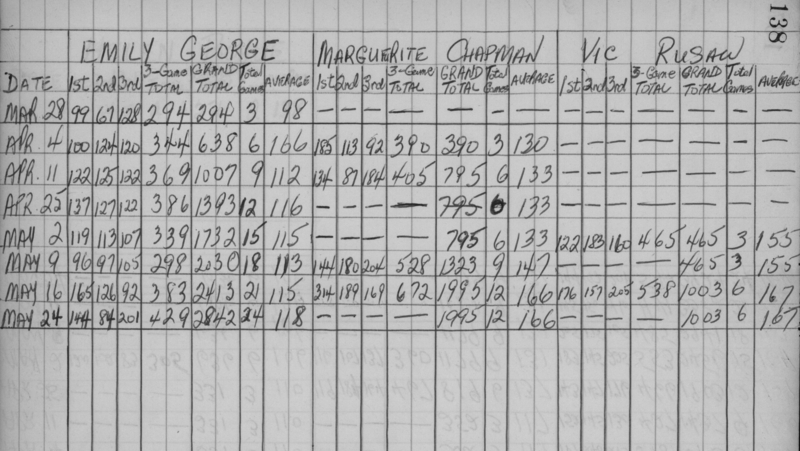 138
EMILY GEORGE MARGUERITE CHAPMAN VIC RUSAW
DATE 1st 2nd 3rd 3-Game TOTAL GRAND TOTAL Total Games AVERAGE 1st 2nd 3rd 3-Game TOTAL GRAND TOTAL Total Games AVERAGE 1st 2nd 3rd 3-Game TOTAL GRAND TOTAL Total Games AVERAGE
MAR 28 99 67 128 294 294 3 98 — — — — — — — — — — — — — —
APR. 4 100 124 120 344 638 6 166 185 113 92 390 390 3 130 — — — — — — —
APR. 11 122 125 122 369 1007 9 112 134 87 184 405 795 6 133 — — — — — — —
APR. 25 137 127 122 386 1393 12 116 — — — — 795 6 133 — — — — — — —
MAY 2 119 113 107 339 1732 15 115 — — — — 795 6 133 122 183 160 465 465 3 155
MAY 9 96 97 105 298 2030 18 113 144 180 204 528 1323 9 147 — — — — 465 3 155
MAY 16 165 126 92 383 2413 21 115 314 189 169 672 1995 12 166 176 157 205 538 1003 6 167
MAY 24 144 84 201 429 2842 24 118 — — — — 1995 12 166 — — — — 1003 6 167